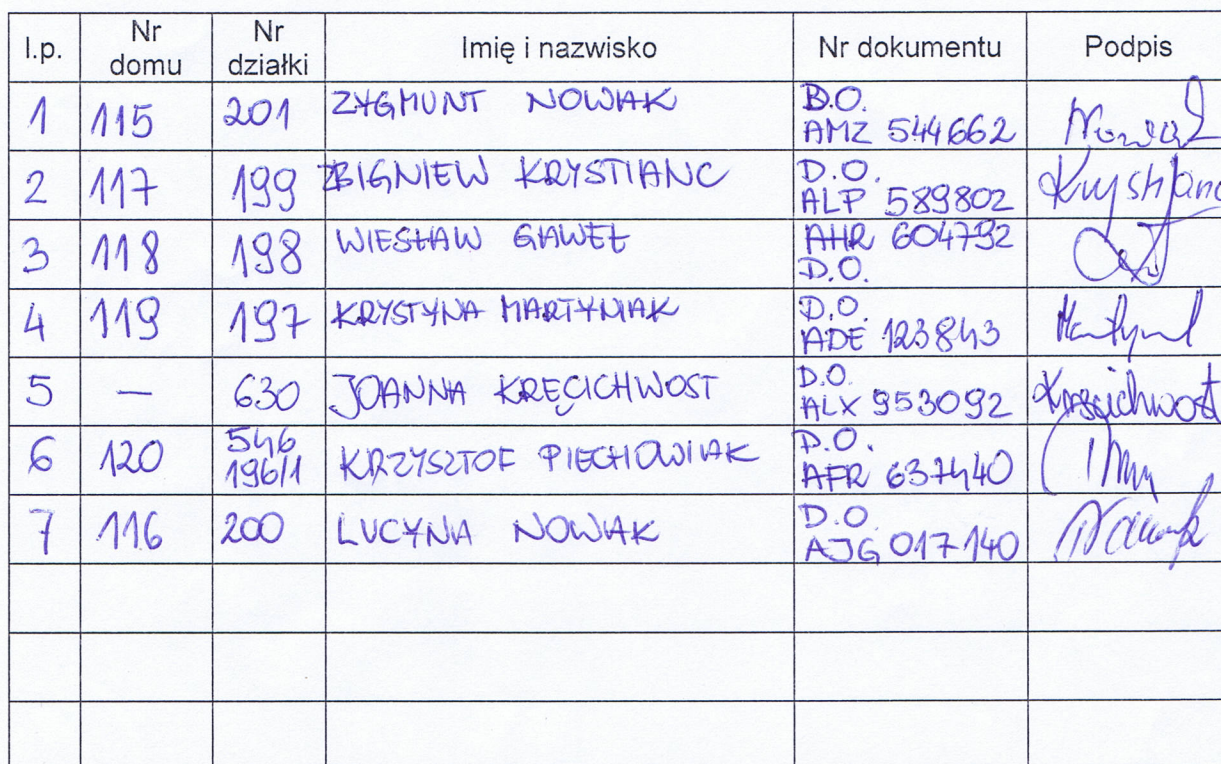 l.p. Nr domu Nr działki Imię i nazwisko Nr dokumentu Podpis
1 115 201 ZYGMUNT NOWAK D.O. AMZ 544662 Nowak
2 117 199 ZBIGNIEW KRYSTIANC D.O. ALP 589802 Krystianc
3 118 198 WIESŁAW GAWEŁ AHR 604792 D.O.
4 119 197 KRYSTYNA MARTYNIAK D.O. ADE 123843
5 — 630 JOANNA KRĘCICHWOST D.O. ALX 953092 Kręcichwost
6 120 546 196/1 KRZYSZTOF PIECHOWIAK D.O. AFR 637440
7 116 200 LUCYNA NOWAK D.O. AJG 017140 Nowak